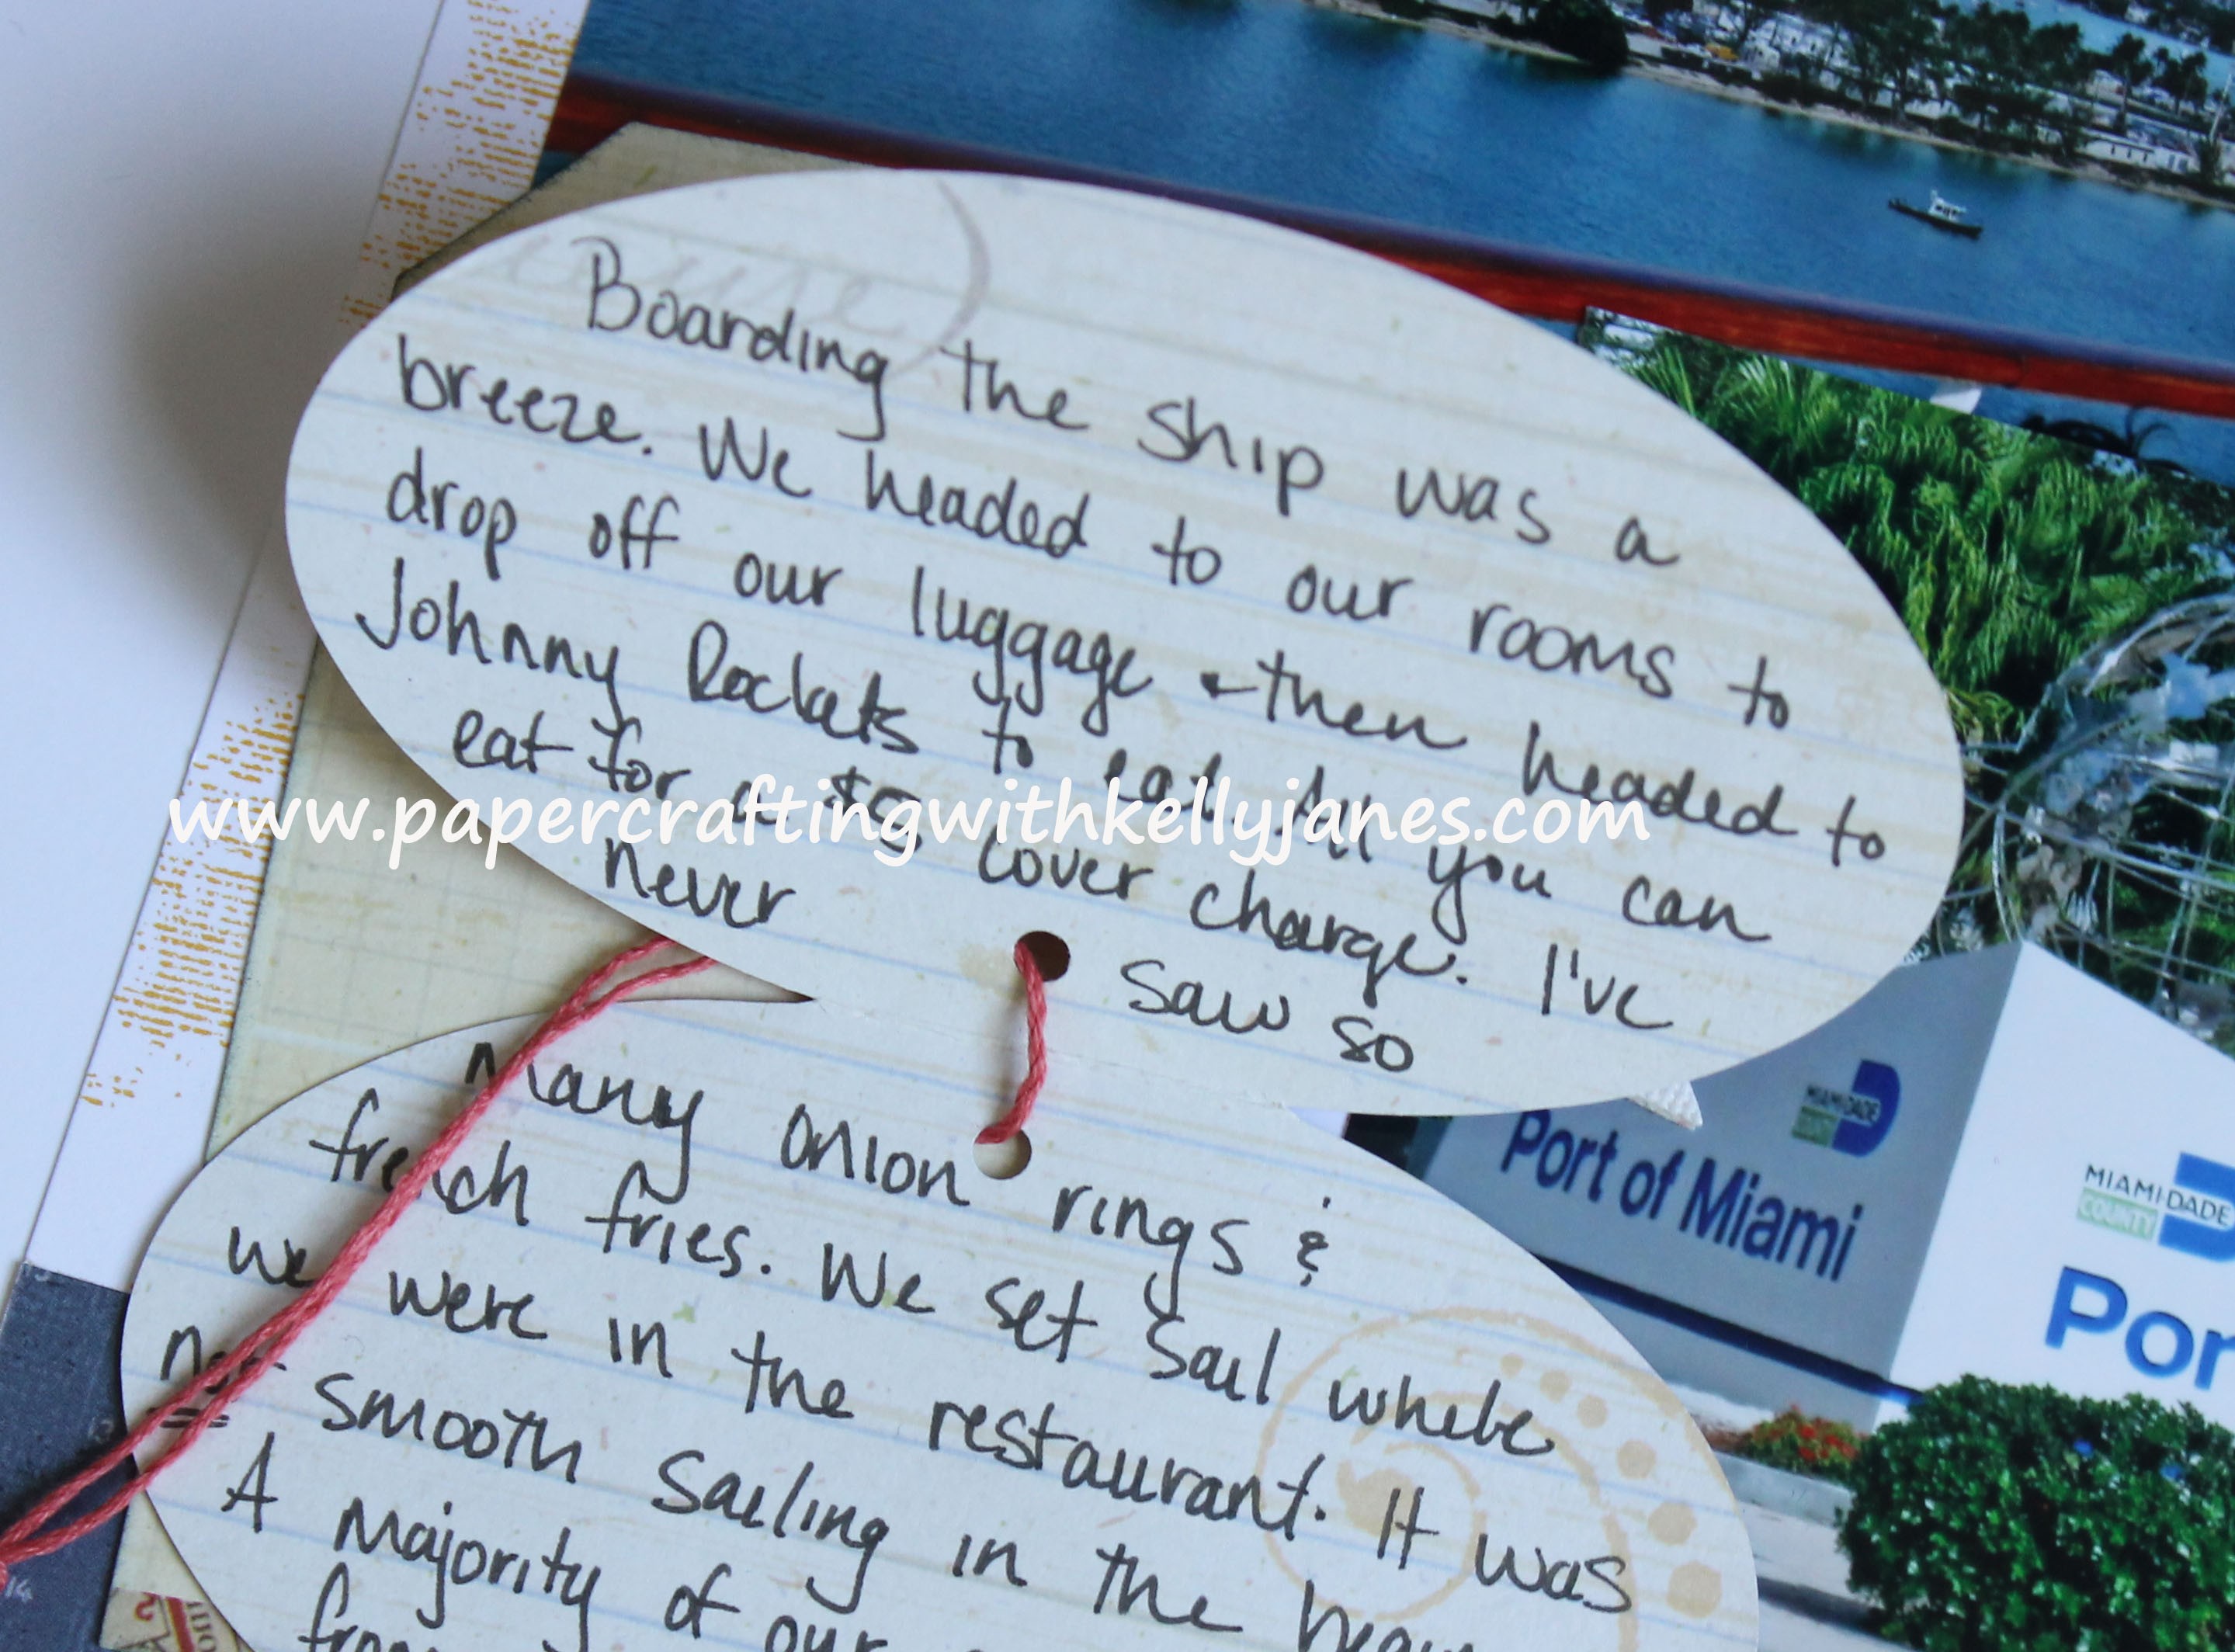 Boarding the ship was a
breeze. We headed to our rooms to
drop off our luggage & then headed to
Johnny Rockets to eat. All you can
eat for a $5 cover charge. I've
never saw so
www.papercraftingwithkellyjanes.com
Many onion rings &
french fries. We set sail while
we were in the restaurant. It was
not smooth sailing in the
A majority of our
MIAMI-DADE
Port of Miami
MIAMI-DADE
COUNTY
Por
14